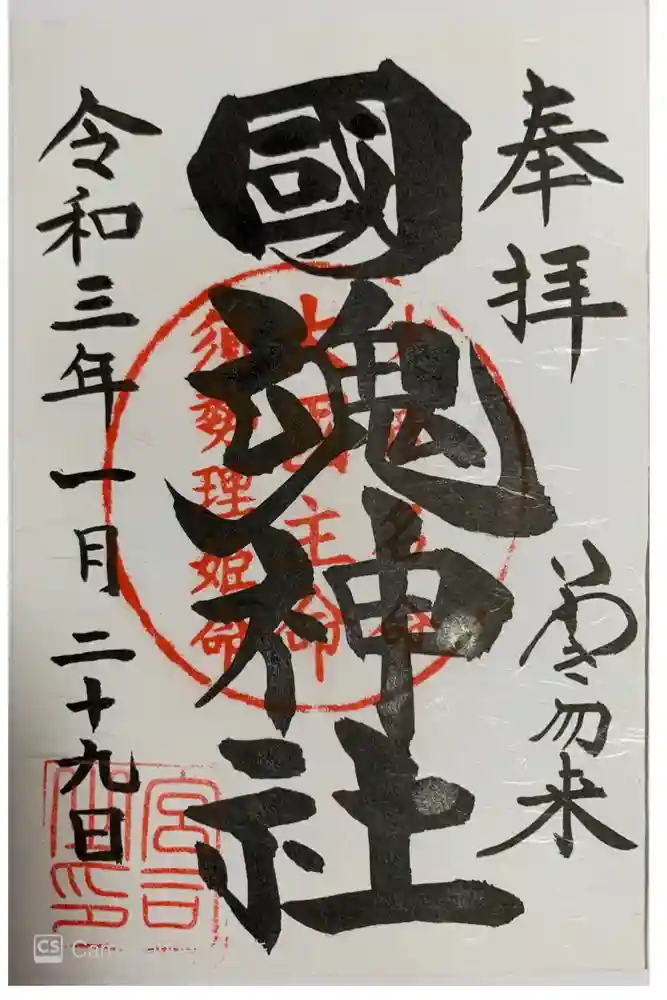 奉拝
菊勿来
國魂神社
大國主命
須勢理姫命
令和三年一月二十九日
宮司
之印
CS